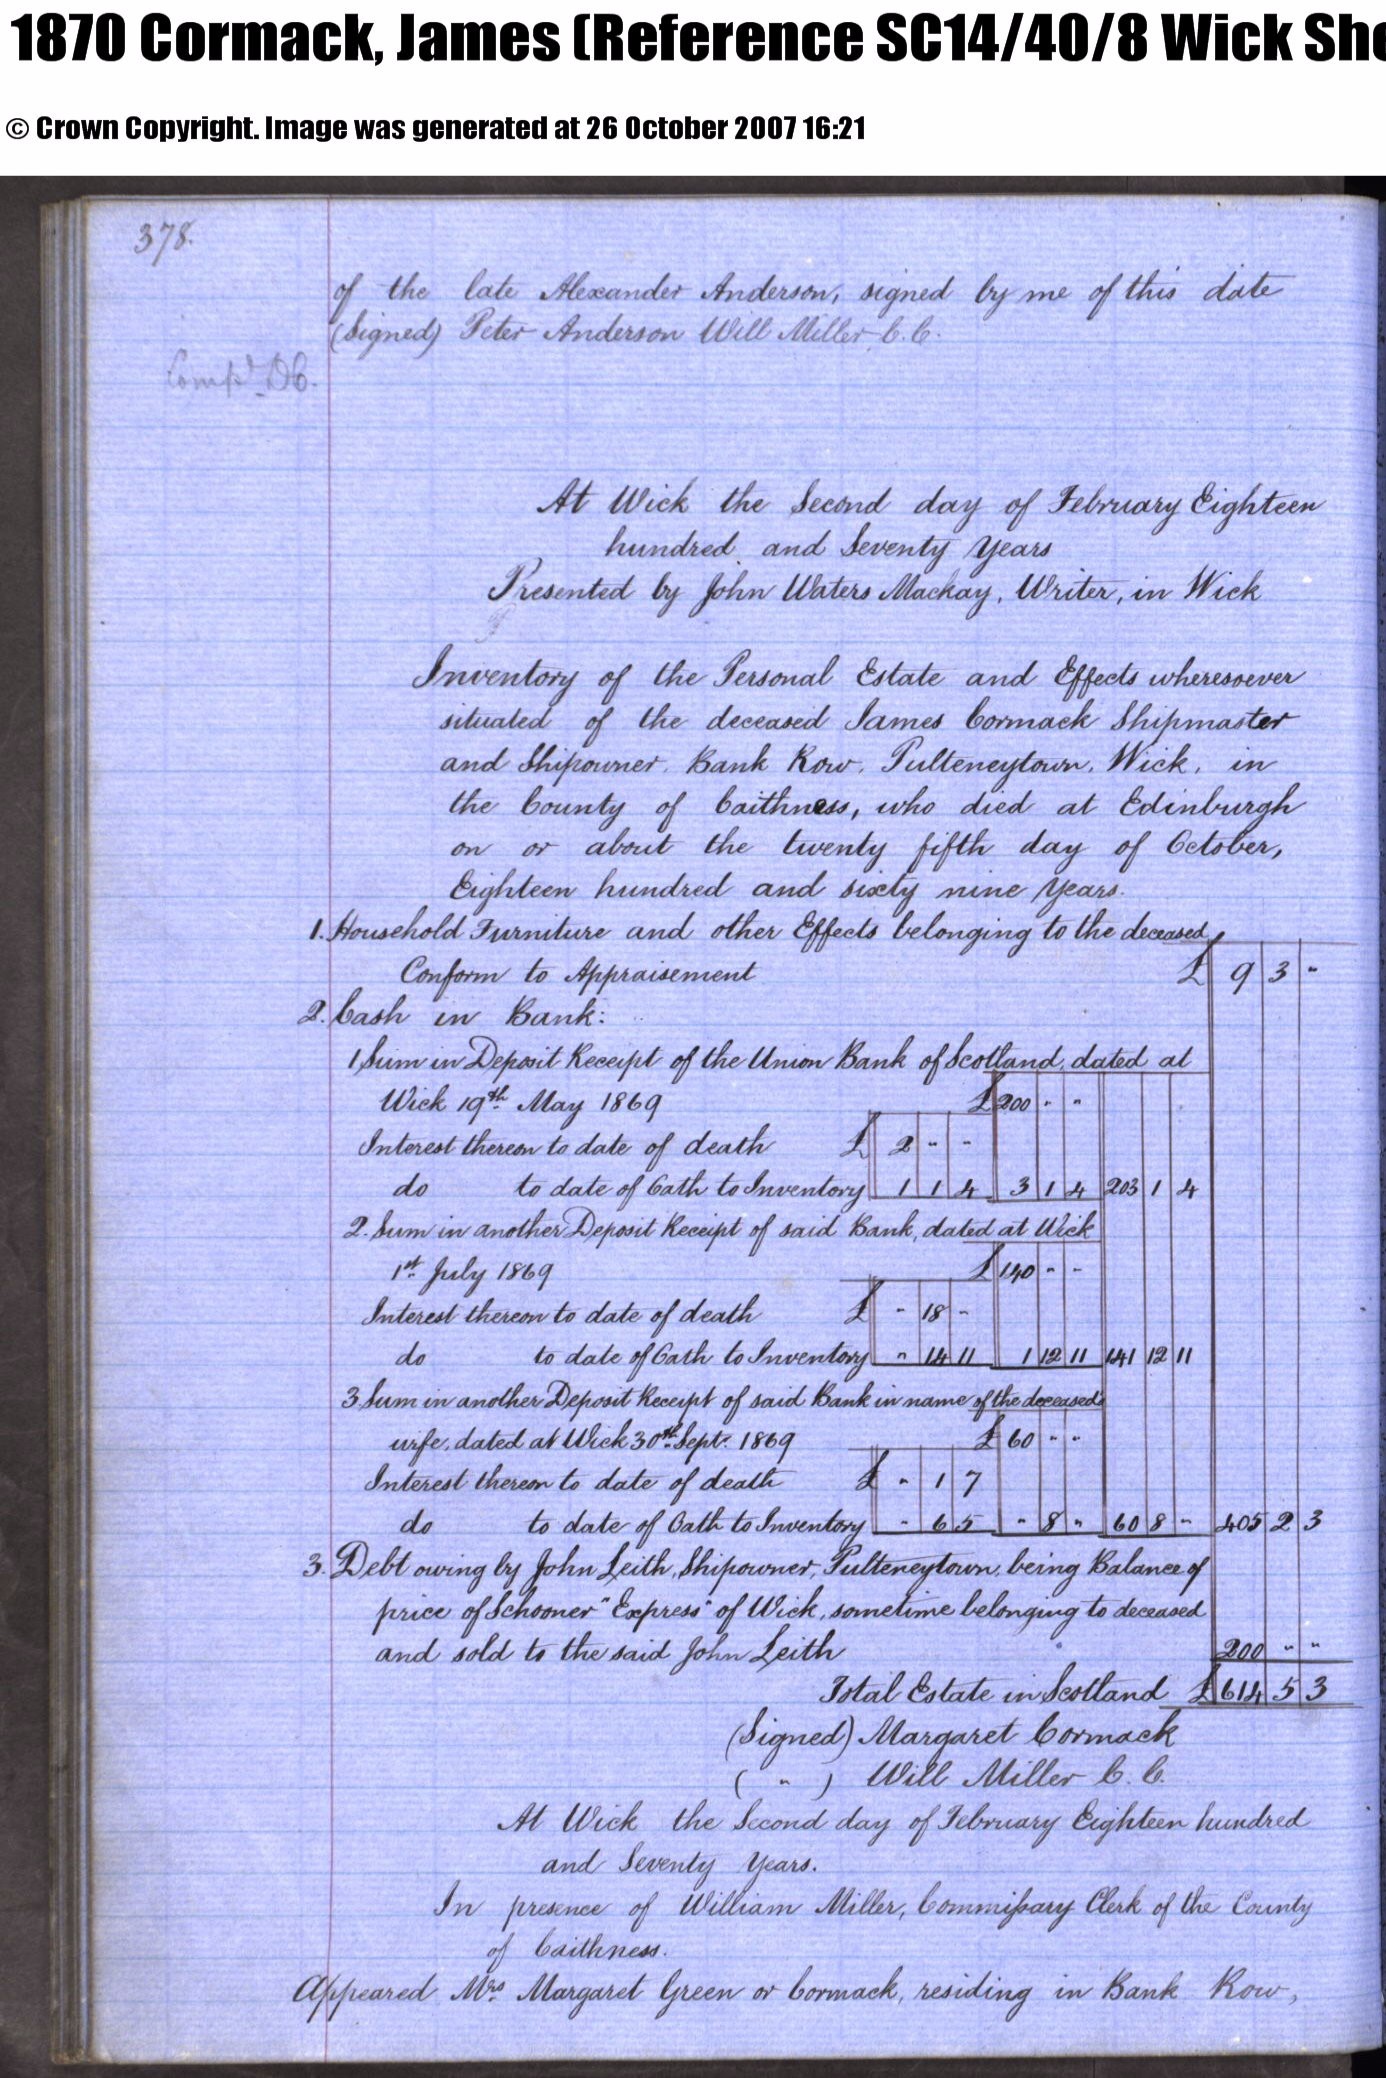 1870 Cormack, James (Reference SC14/40/8 Wick She
© Crown Copyright. Image was generated at 26 October 2007 16:21
378.
of the late Alexander Anderson, signed by me of this date
(Signed) Peter Anderson Will Miller C.C.
Compd. DC.
At Wick the Second day of February Eighteen
hundred and Seventy Years
Presented by John Waters Mackay, Writer, in Wick
Inventory of the Personal Estate and Effects wheresoever
situated of the deceased James Cormack Shipmaster
and Shipowner, Bank Row, Pulteneytown, Wick, in
the County of Caithness, who died at Edinburgh
on or about the twenty fifth day of October,
Eighteen hundred and sixty nine Years.
1. Household Furniture and other Effects belonging to the deceased
Conform to Appraisement £ 9 3 "
2. Cash in Bank:
1 Sum in Deposit Receipt of the Union Bank of Scotland, dated at
Wick 19th May 1869 £ 200 " "
Interest thereon to date of death £ 2 " "
do to date of Oath to Inventory 1 1 4 3 1 4 203 1 4
2. Sum in another Deposit Receipt of said Bank, dated at Wick
1st July 1869 £ 140 " "
Interest thereon to date of death £ " 18 "
do to date of Oath to Inventory " 14 11 1 12 11 141 12 11
3 Sum in another Deposit Receipt of said Bank in name of the deceased's
wife, dated at Wick 30th Sept. 1869 £ 60 " "
Interest thereon to date of death £ " 1 7
do to date of Oath to Inventory " 6 5 " 8 " 60 8 " 405 2 3
3. Debt owing by John Leith, Shipowner, Pulteneytown, being Balance of
price of Schooner "Express" of Wick, sometime belonging to deceased
and sold to the said John Leith 200 " "
Total Estate in Scotland £ 614 5 3
(Signed) Margaret Cormack
( " ) Will Miller C.C.
At Wick the Second day of February Eighteen hundred
and Seventy Years.
In presence of William Miller, Commissary Clerk of the County
of Caithness.
Appeared Mrs. Margaret Green or Cormack, residing in Bank Row,